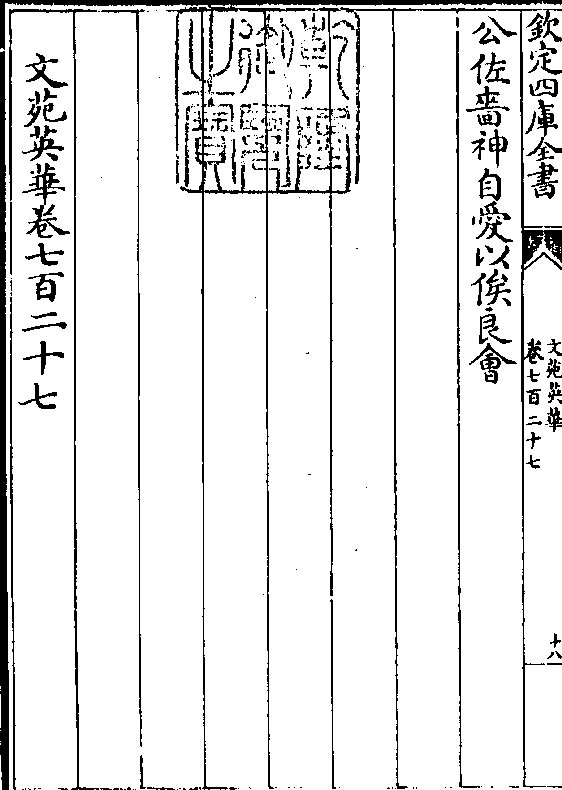 欽定四庫全書
文苑英華
卷七百二十七
十八
公佐嗇神自愛以俟良會
乾隆御覽之寶
文苑英華卷七百二十七